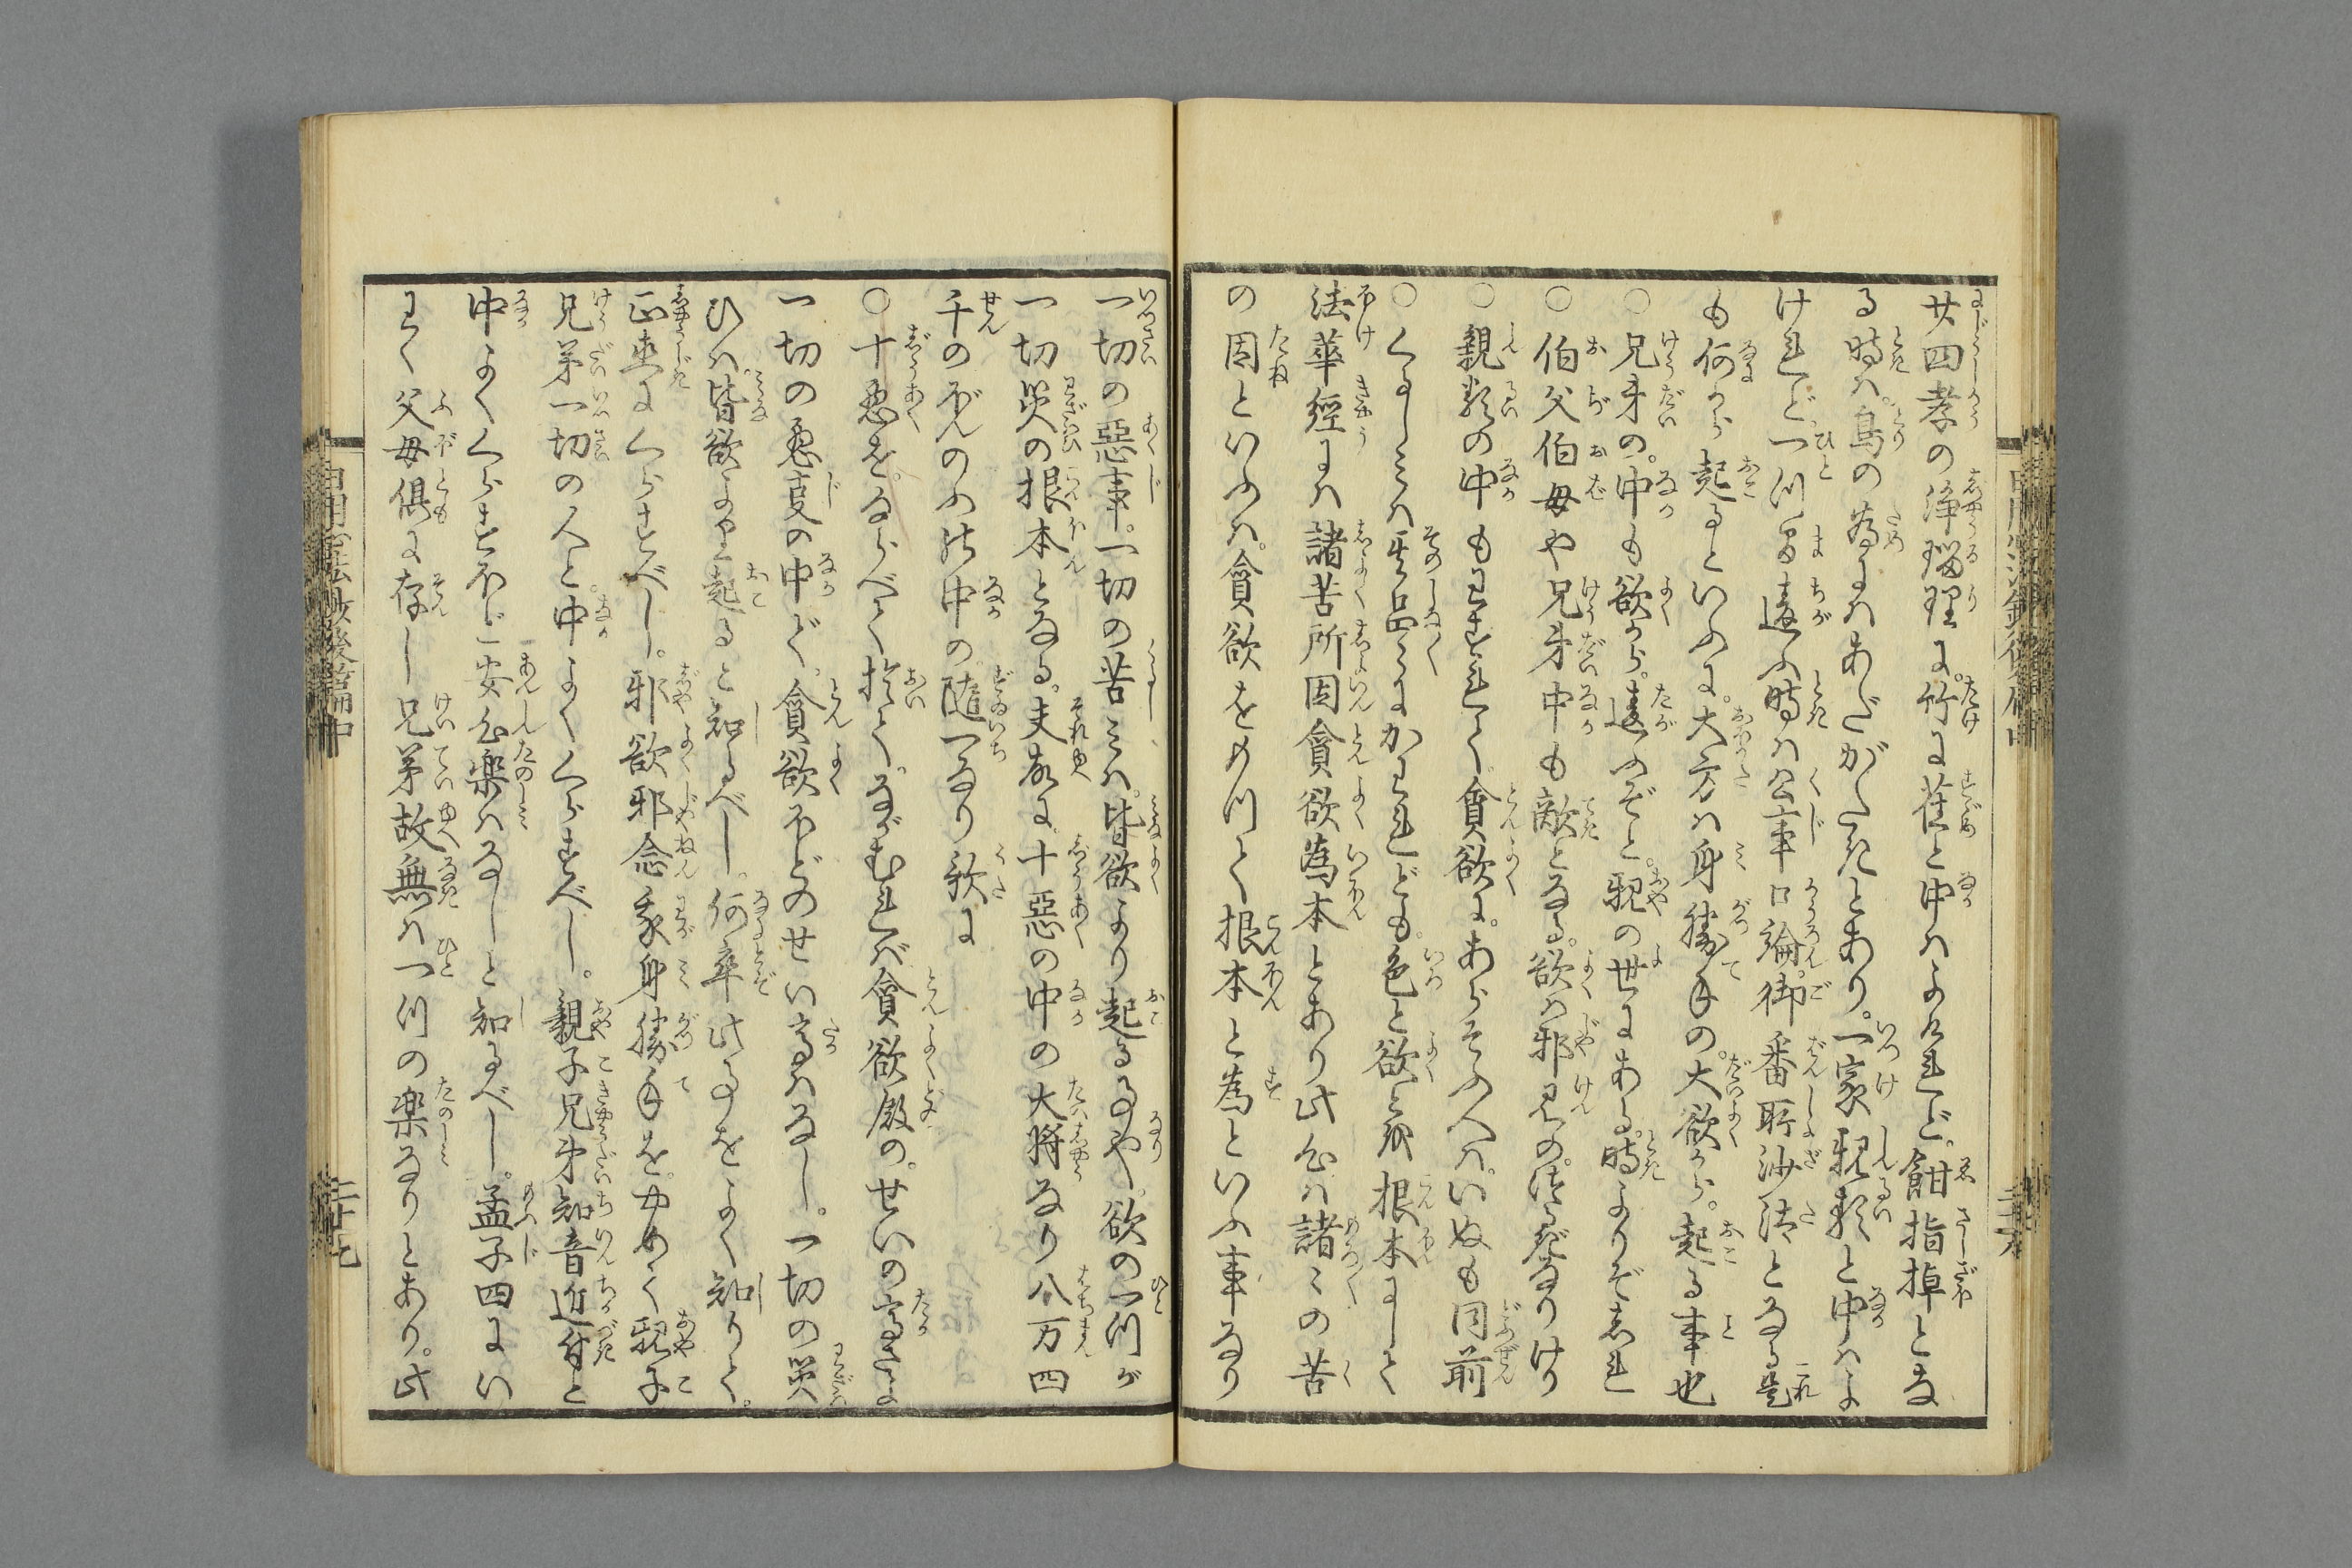 廿四孝の浄瑠理に。竹に雀と中はよけれど。餌指掉とな
る時は。鳥の為にはあだがたきとあり。一家親類と中はよ
けれど。一つ間違ふ時は公事口論。御番所沙汰となる是
も何から起るといふに。大方は身勝手の。大欲から。起る事也
○兄弟の。中も欲から。違ふぞと。親の世にある。時よりぞしれ
○伯父伯母や兄弟中も敵となる。欲は邪見の。つるぎなりけり
○親類の中もわすれて貪欲に。あらそふ人は。いぬも同前
○くるしみは其品々にかわれども。色と欲とが根本にして
法華経には諸苦所因貪欲為本とあり此心は諸々の苦
の因といふは。貪欲をもつて根本と為といふ事なり
一切の悪事。一切の苦みは。皆欲より起る事や。欲の一つが
一切災の根本となる。夫故に。十悪の中の大将なり八万四
千のぼんのふ此中の。随一なり歌に
○十悪を。ならべて於て。ながむれば貪欲殿の。せいの高さよ
一切の悪事の中ど。貪欲ほどのせい高はなし。一切の災
ひは。皆欲より起ると知るべし。何卒此事をよく知りて。
正直にくらすべし。邪欲邪念我身勝手を。やめて親子
兄弟一切の人と。中よくくらすべし。親子兄弟知音近付と
中よくくらすほど安心楽はなしと知るべし。孟子四にい
わく父母倶に存し兄弟故無は一つの楽なりとあり。此
二十七